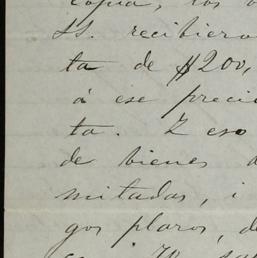 copia, los
SS. recibiero
ta de $200,
á ese preci
ta. I eso
de bienes
mitadas, i
gos plazos, de